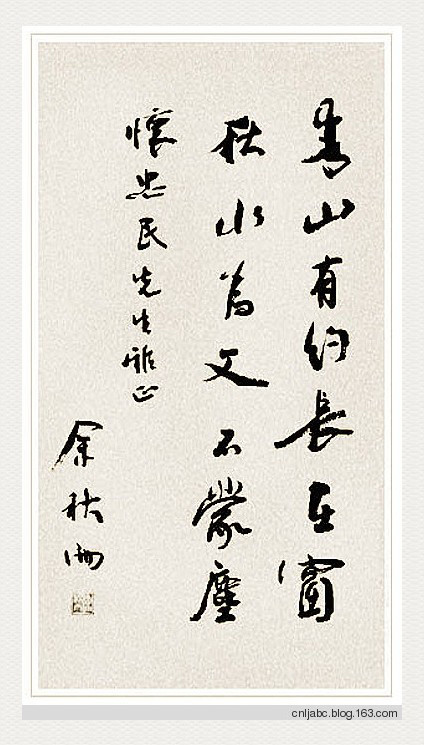 青山有約長在窗
秋水為文不蒙塵
懷忠民先生雅正
余秋雨
cnljabc.blog.163.com